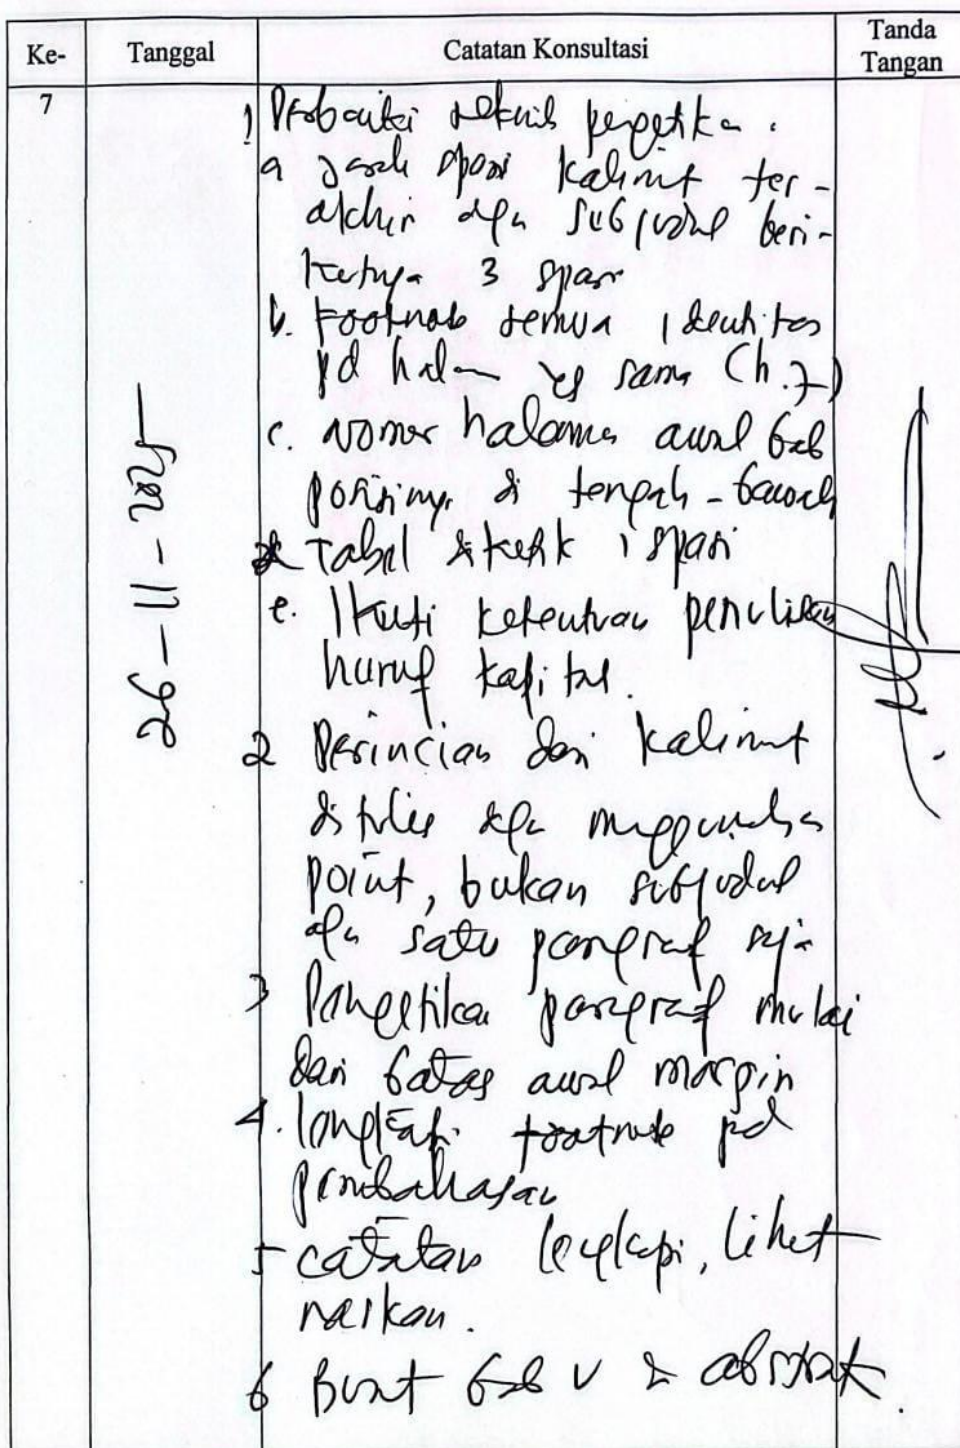 Ke- Tanggal Catatan Konsultasi Tanda Tangan
7
1 Perbaiki teknik pengetikan.
a Jarak spasi kalimat ter-
akhir dgn subjudul beri-
kutnya 3 spasi
b. Footnote semua identitas
pd halam yg sama (h.7)
c. Nomer halaman awal bab
posisinya di tengah-bawah
d Tabel diketik 1 spasi
e. Ikuti ketentuan penulisan
huruf kapital.
2 Perincian dari kalimat
ditulis dgn menggunakan
point, bukan subjudul
dgn satu paragraf saja
3 Pengetikan paragraf mulai
dari batas awal margin
4. lengkapi footnote pd
pembahasan
5 catatan lengkapi, lihat
naskah.
6 Buat bab V & abstrak.